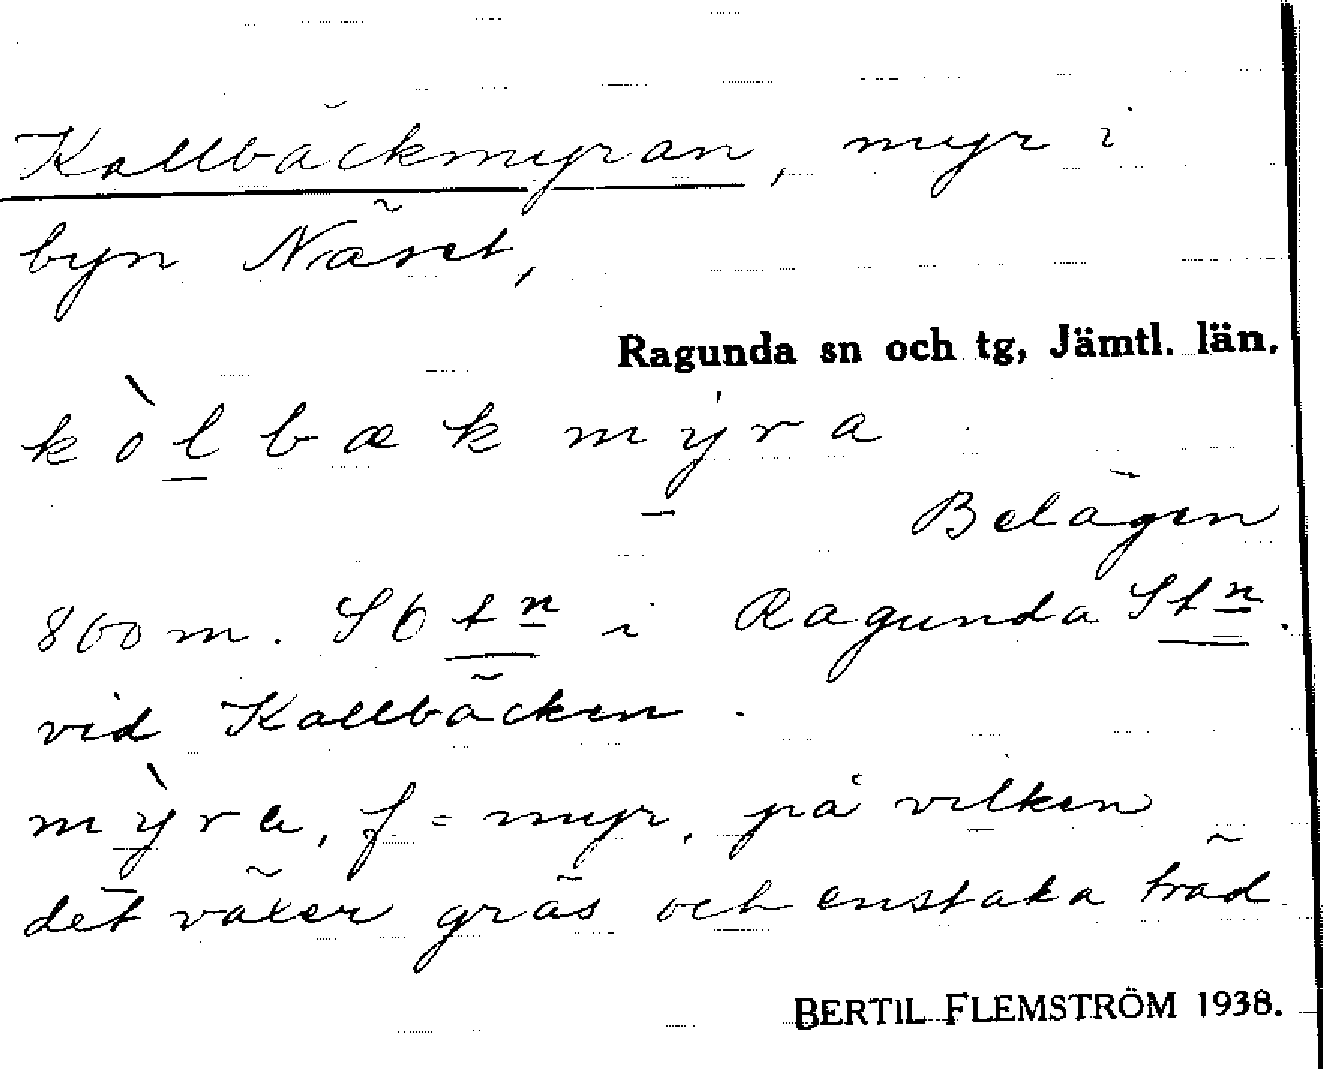 Kallbäckmyran, myr i
byn Näset,
Ragunda sn och tg, Jämtl. län.
kòlbækmyra
Belägen
800 m. SO t n i Ragunda St n.
vid Kallbäcken.
mỳra, f = myr, på vilken
det växer gräs och enstaka träd
BERTIL FLEMSTRÖM 1938.